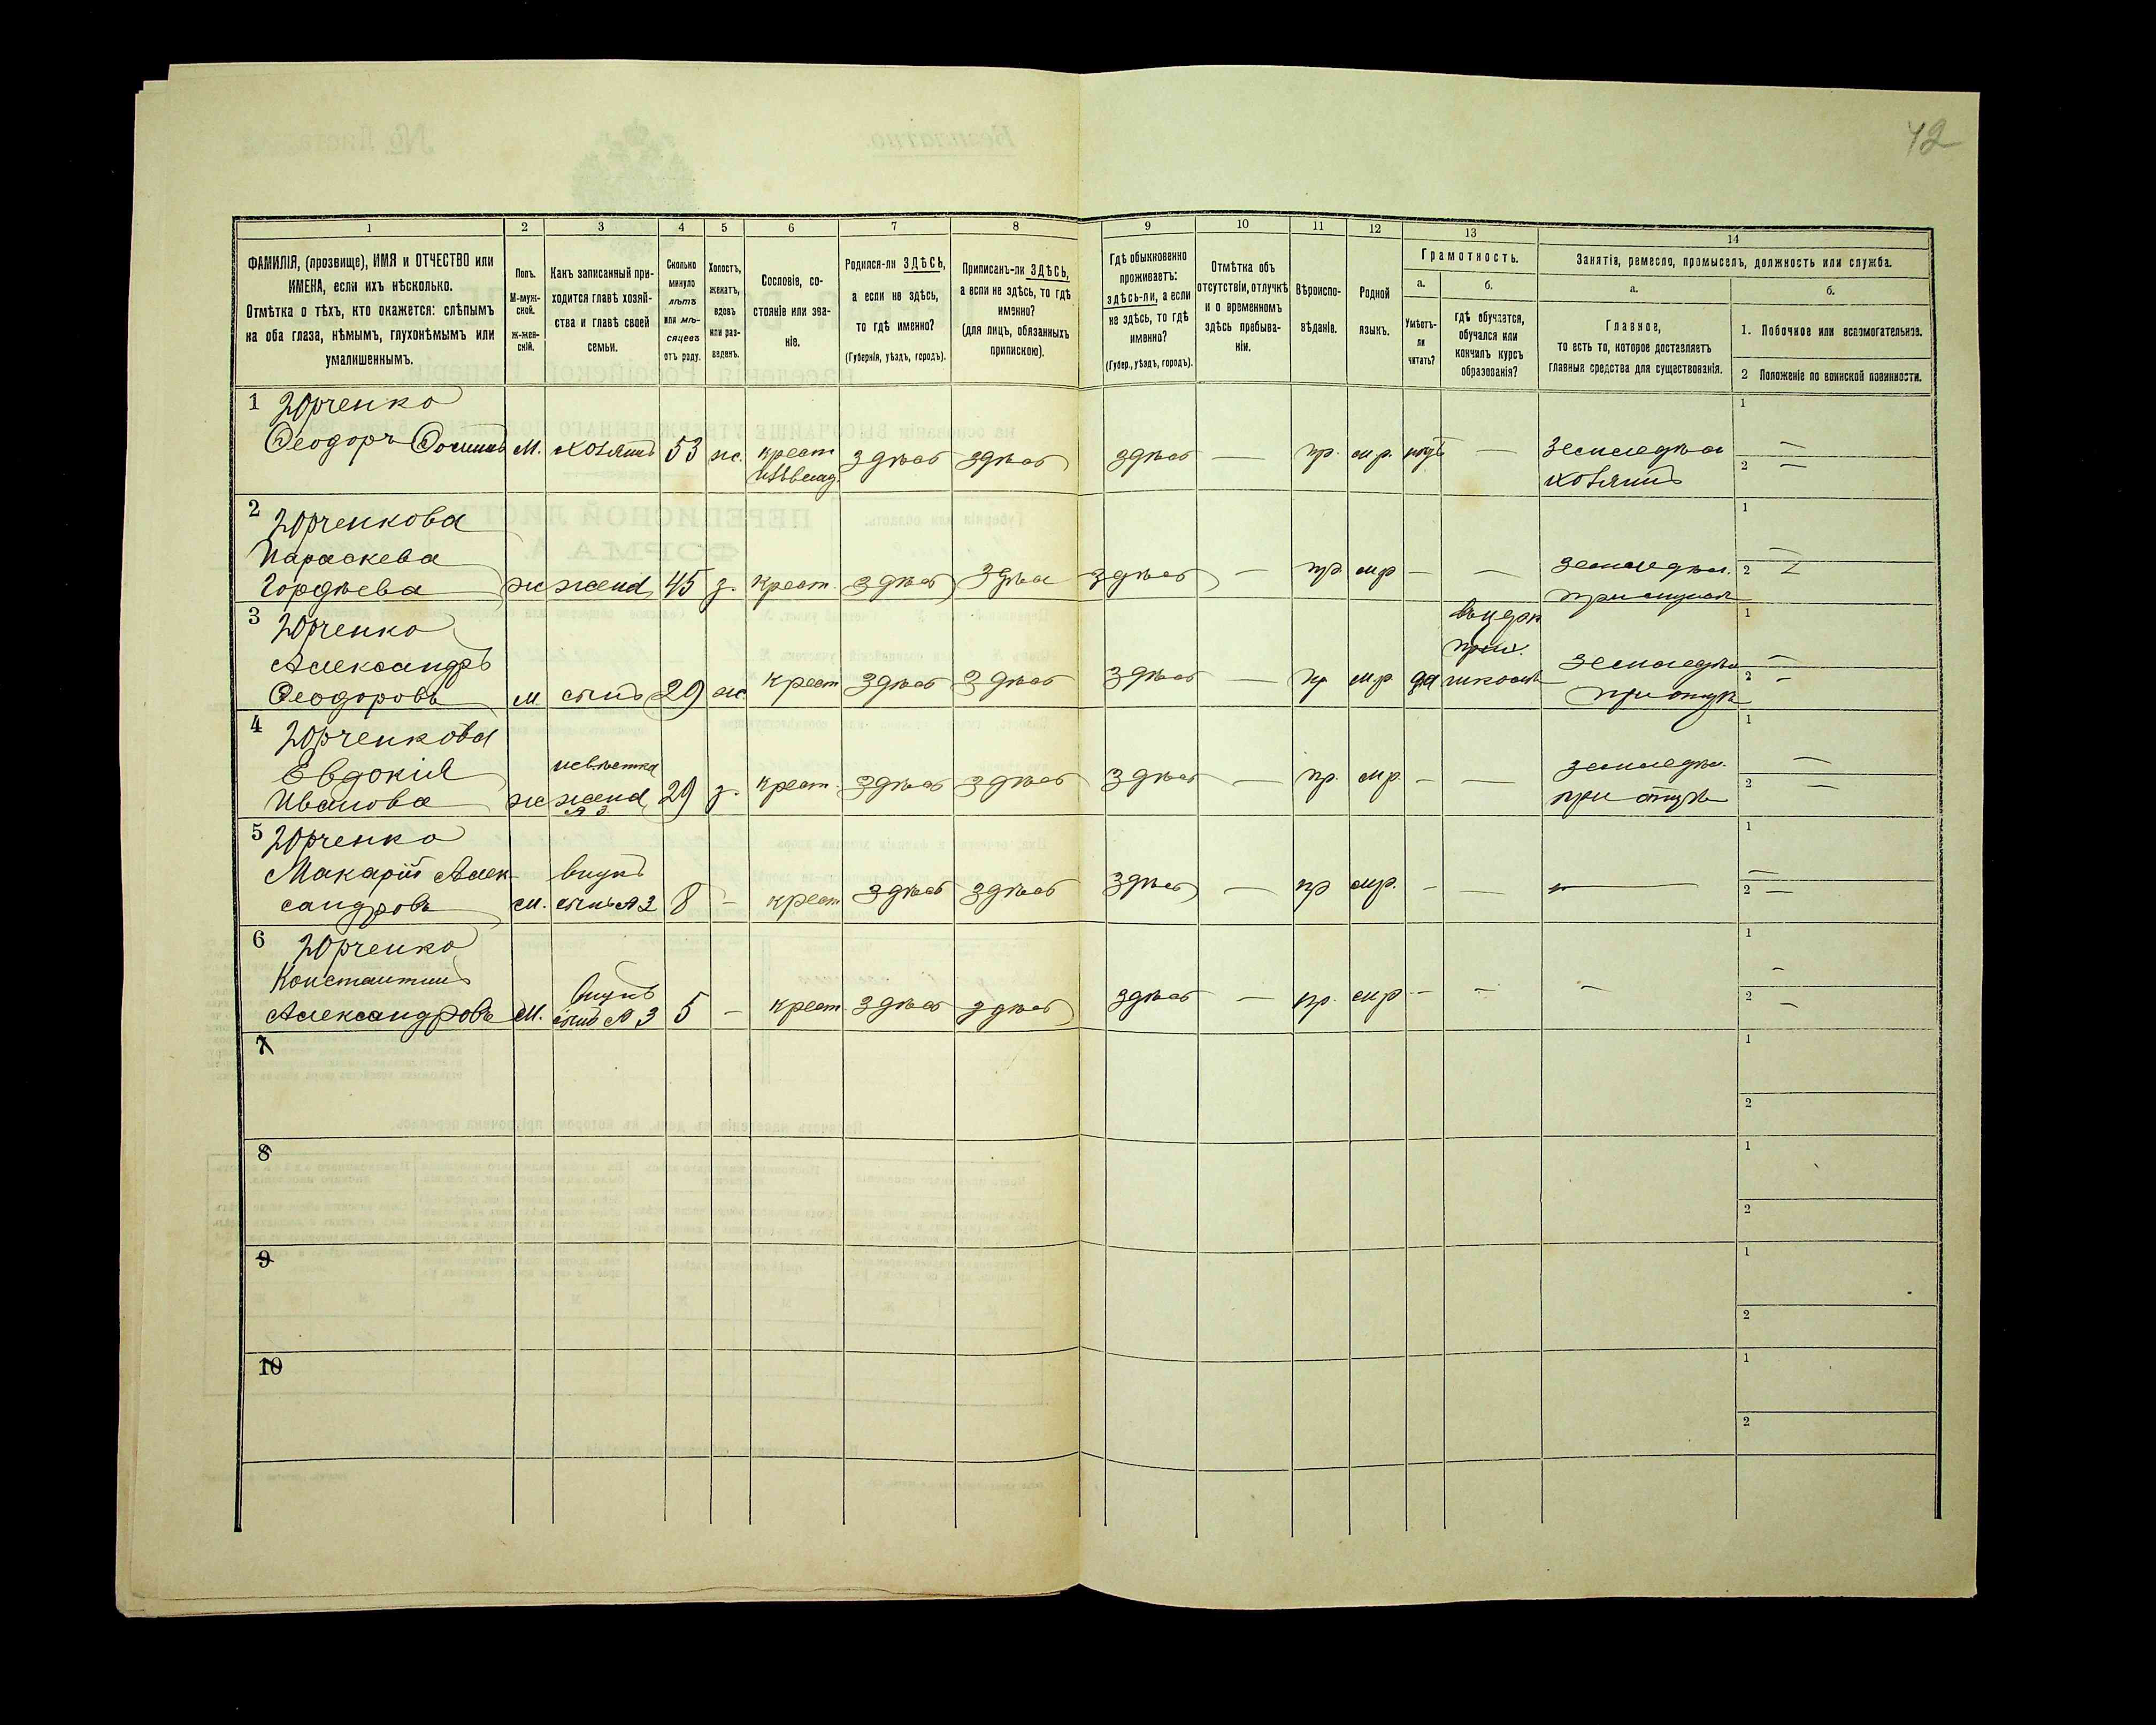 42
1 2 3 4 5 6 7 8 9 10 11 12 13 14
ФАМИЛІЯ, (прозвище), ИМЯ и ОТЧЕСТВО или
ИМЕНА, если ихъ нѣсколько.
Отмѣтка о тѣхъ, кто окажется: слѣпымъ
на оба глаза, нѣмымъ, глухонѣмымъ или
умалишеннымъ.
Полъ.
М-муж-
ской.
ж-жен-
скій.
Какъ записанный при-
ходится главѣ хозяй-
ства и главѣ своей
семьи.
Сколько
минуло
лѣтъ
или мѣ-
сяцевъ
отъ роду.
Холостъ,
женатъ,
вдовъ
или раз-
веденъ.
Сословіе, со-
стояніе или зва-
ніе.
Родился-ли ЗДѢСЬ,
а если не здѣсь,
то гдѣ именно?
(Губернія, уѣздъ, городъ).
Приписанъ-ли ЗДѢСЬ,
а если не здѣсь, то гдѣ
именно?
(для лицъ, обязанныхъ
припискою).
Гдѣ обыкновенно
проживаетъ:
здѣсь-ли, а если
не здѣсь, то гдѣ
именно?
(Губер., уѣздъ, городъ).
Отмѣтка объ
отсутствіи, отлучкѣ
и о временномъ
здѣсь пребыва-
ніи.
Вѣроиспо-
вѣданіе.
Родной
языкъ.
Грамотность.
а.
Умѣетъ-
ли
читать?
б.
гдѣ обучается,
обучался или
кончилъ курсъ
образованія?
Занятіе, ремесло, промыселъ, должность или служба.
а.
Главное,
то есть то, которое доставляетъ
главныя средства для существованія.
б.
1. Побочное или вспомогательное.
2 Положеніе по воинской повинности.
1 Юрченко
Ѳеодоръ Ѳоминъ м. хозяинъ 53 ж. крест здѣсь здѣсь здѣсь — пр. мр. — земледѣл 1 —
хозяинъ 2 —
2 Юрченкова
Параскева
Гордѣева ж жена 45 з. крест. здѣсь здѣсь здѣсь — пр. мр — — земледѣл. 1 — 2 —
3 Юрченко
Александръ
Ѳеодоровъ м. сынъ 29 ж. крест здѣсь здѣсь здѣсь — пр мр. да школѣ земледѣл 1 —
при отцѣ 2 —
4 Юрченкова
Евдокія невѣстка
Иванова ж жена 29 з. крест. здѣсь здѣсь здѣсь — пр. мр. — — земледѣл. 1 —
№ 3 при отцѣ 2 —
5 Юрченко
Макарій Алек- внукъ
сандровъ м. сынъ № 3 8 — крест здѣсь здѣсь здѣсь — пр мр. — — — 1 — 2 —
6 Юрченко
Константинъ внукъ
Александровъ м. сынъ № 3 5 — крест здѣсь здѣсь здѣсь — пр. мр — — — 1 — 2 —
7 1
2
8 1
2
9 1
2
10 1
2